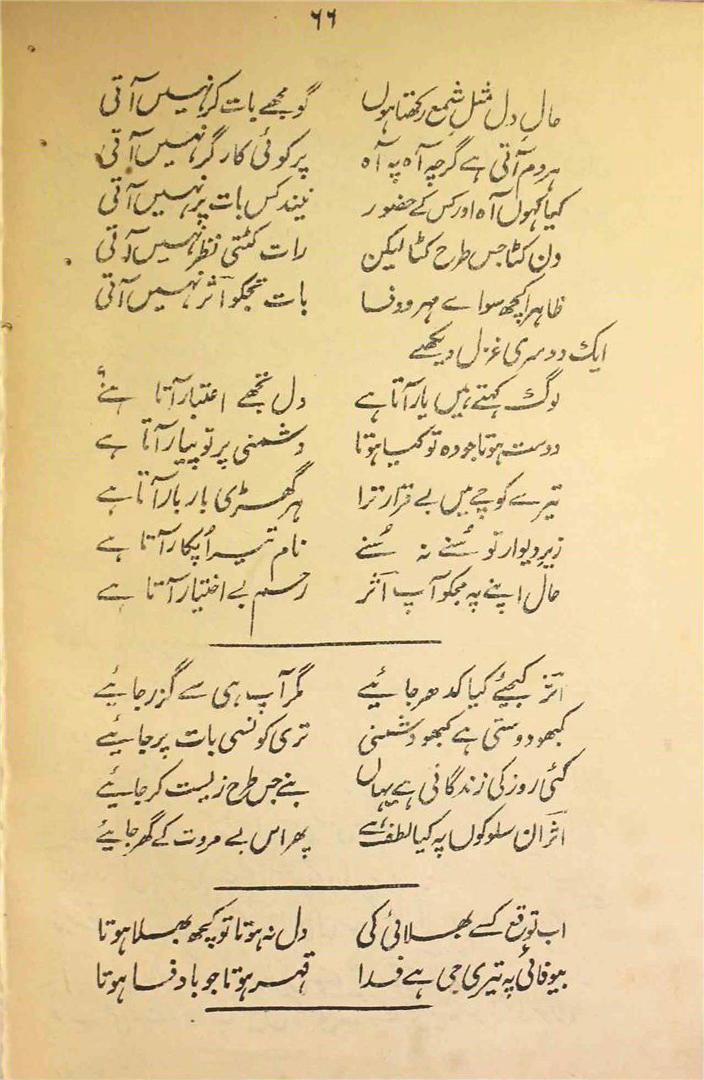 ۶۶
حالِ دل مثلِ شمع رکھتا ہوں گو مجھے بات کر نہیں آتی
ہر دم آتی ہے گرچہ آہ پہ آہ پر کوئی کارگر نہیں آتی
کیا کہوں آہ اور کس کے حضور نیند کس بات پر نہیں آتی
دن کٹا جس طرح کٹا لیکن رات کٹتی نظر نہیں آتی
ظاہرا کچھ سواے مہر و وفا بات تجکو آثر نہیں آتی
ایک دوسری غزل دیکھے
لوگ کہتے ہیں یار آتا ہے دل تجھے اعتبار آتا ہے
دوست ہوتا جو وہ تو کیا ہوتا دشمنی پر تو پیار آتا ہے
تیرے کوچے میں بے قرار ترا ہر گھڑی بار بار آتا ہے
زیرِ دیوار تو سُنے نہ سُنے نام تیرا پُکار آتا ہے
حال اپنے پہ مجکو آپ آثر رحم بے اختیار آتا ہے
اثر کیجئے کیا کدھر جائیے مگر آپ ہی سے گزر جائیے
کبھو دوستی ہے کبھو دشمنی تری کونسی بات پر جائیے
کئی روز کی زندگانی ہے یہاں بنے جس طرح زیست کر جائیے
آثر ان سلوکوں پہ کیا لطف ہے پھر اس بے مروت کے گھر جائیے
اب توقع کسے بھلائی کی دل نہ ہوتا تو کچھ بھلا ہوتا
بیوفائی پہ تیری جی ہے فدا قہر ہوتا جو باوفا ہوتا